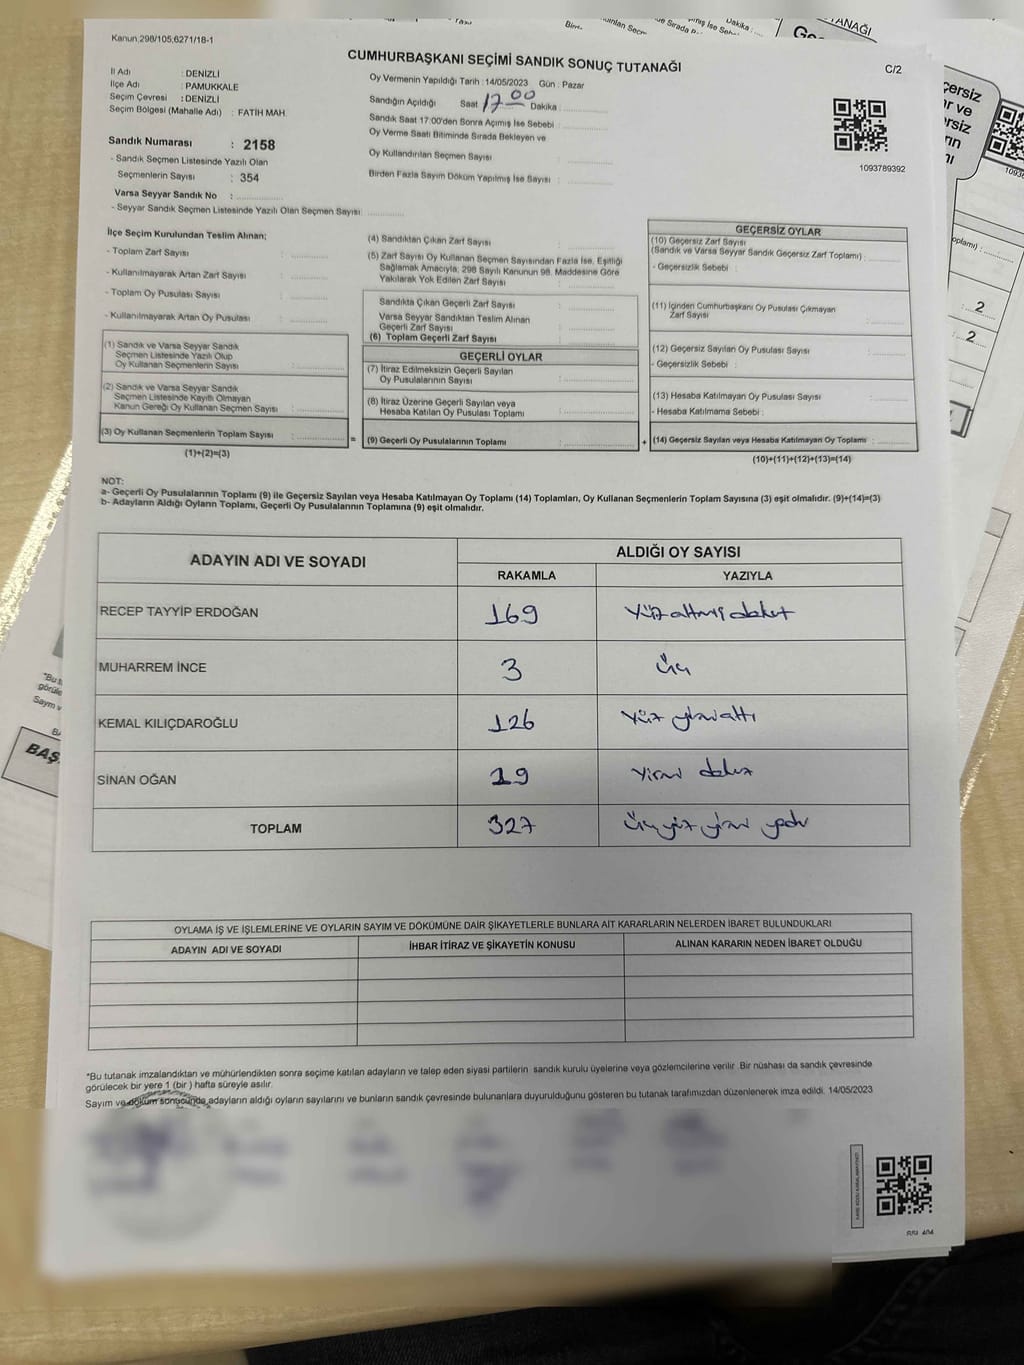 Kanun 298/105,6271/18-1
CUMHURBAŞKANI SEÇİMİ SANDIK SONUÇ TUTANAĞI
C/2
İl Adı : DENİZLİ
İlçe Adı : PAMUKKALE
Seçim Çevresi : DENİZLİ
Seçim Bölgesi (Mahalle Adı) : FATİH MAH.
Oy Vermenin Yapıldığı Tarih : 14/05/2023 Gün : Pazar
Sandığın Açıldığı Saat 17 00 Dakika :
Sandık Saat 17:00'den Sonra Açımış İse Sebebi :
Oy Verme Saati Bitiminde Sırada Bekleyen ve
Oy Kullandırılan Seçmen Sayısı :
Birden Fazla Sayım Döküm Yapılmış İse Sayısı :
1093789392
Sandık Numarası : 2158
- Sandık Seçmen Listesinde Yazılı Olan
Seçmenlerin Sayısı : 354
Varsa Seyyar Sandık No :
- Seyyar Sandık Seçmen Listesinde Yazılı Olan Seçmen Sayısı:
İlçe Seçim Kurulundan Teslim Alınan;
- Toplam Zarf Sayısı :
- Kullanılmayarak Artan Zarf Sayısı :
- Toplam Oy Pusulası Sayısı :
- Kullanılmayarak Artan Oy Pusulası :
(1) Sandık ve Varsa Seyyar Sandık
Seçmen Listesinde Yazılı Olup
Oy Kullanan Seçmenlerin Sayısı :
(2) Sandık ve Varsa Seyyar Sandık
Seçmen Listesinde Kayıtlı Olmayan
Kanun Gereği Oy Kullanan Seçmen Sayısı :
(3) Oy Kullanan Seçmenlerin Toplam Sayısı :
(1)+(2)=(3)
(4) Sandıktan Çıkan Zarf Sayısı :
(5) Zarf Sayısı Oy Kullanan Seçmen Sayısından Fazla İse, Eşitliği
Sağlamak Amacıyla; 298 Sayılı Kanunun 98. Maddesine Göre
Yakılarak Yok Edilen Zarf Sayısı :
Sandıkta Çıkan Geçerli Zarf Sayısı :
Varsa Seyyar Sandıktan Teslim Alınan
Geçerli Zarf Sayısı :
(6) Toplam Geçerli Zarf Sayısı :
GEÇERLİ OYLAR
(7) İtiraz Edilmeksizin Geçerli Sayılan
Oy Pusulalarının Sayısı :
(8) İtiraz Üzerine Geçerli Sayılan veya
Hesaba Katılan Oy Pusulası Toplamı :
= (9) Geçerli Oy Pusulalarının Toplamı :
GEÇERSİZ OYLAR
(10) Geçersiz Zarf Sayısı
(Sandık ve Varsa Seyyar Sandık Geçersiz Zarf Toplamı) :
- Geçersizlik Sebebi :
(11) İçinden Cumhurbaşkanı Oy Pusulası Çıkmayan
Zarf Sayısı :
(12) Geçersiz Sayılan Oy Pusulası Sayısı :
- Geçersizlik Sebebi :
(13) Hesaba Katılmayan Oy Pusulası Sayısı :
- Hesaba Katılmama Sebebi :
+ (14) Geçersiz Sayılan veya Hesaba Katılmayan Oy Toplamı :
(10)+(11)+(12)+(13)=(14)
NOT:
a- Geçerli Oy Pusulalarının Toplamı (9) ile Geçersiz Sayılan veya Hesaba Katılmayan Oy Toplamı (14) Toplamları, Oy Kullanan Seçmenlerin Toplam Sayısına (3) eşit olmalıdır. (9)+(14)=(3)
b- Adayların Aldığı Oyların Toplamı, Geçerli Oy Pusulalarının Toplamına (9) eşit olmalıdır.
ADAYIN ADI VE SOYADI ALDIĞI OY SAYISI
RAKAMLA YAZIYLA
RECEP TAYYİP ERDOĞAN 169 Yüz altmış dokuz
MUHARREM İNCE 3 üç
KEMAL KILIÇDAROĞLU 126 Yüz yirmi altı
SİNAN OĞAN 29 Yirmi dokuz
TOPLAM 327 üç yüz yirmi yedi
OYLAMA İŞ VE İŞLEMLERİNE VE OYLARIN SAYIM VE DÖKÜMÜNE DAİR ŞİKAYETLERLE BUNLARA AİT KARARLARIN NELERDEN İBARET BULUNDUKLARI
ADAYIN ADI VE SOYADI İHBAR İTİRAZ VE ŞİKAYETİN KONUSU ALINAN KARARIN NEDEN İBARET OLDUĞU
*Bu tutanak imzalandıktan ve mühürlendikten sonra seçime katılan adayların ve talep eden siyasi partilerin sandık kurulu üyelerine veya gözlemcilerine verilir. Bir nüshası da sandık çevresinde
görülecek bir yere 1 (bir ) hafta süreyle asılır.
Sayım ve döküm sonucunda adayların aldığı oyların sayılarını ve bunların sandık çevresinde bulunanlara duyurulduğunu gösteren bu tutanak tarafımızdan düzenlenerek imza edildi. 14/05/2023